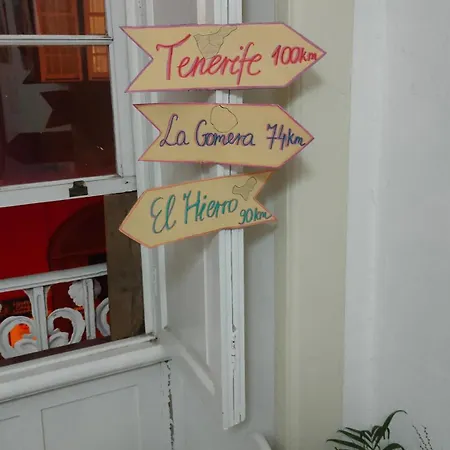 Tenerife 100km
La Gomera 74km
El Hierro 90km